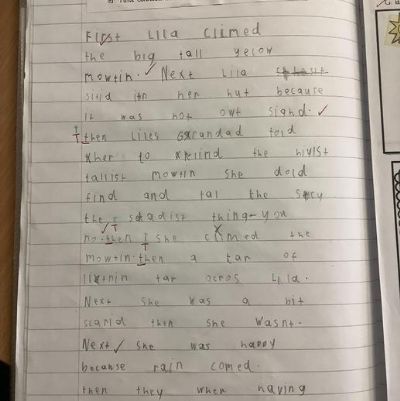 First Lila climed
the big tall yelow
mowtin. Next Lila
stid in her hut because
it was not owt sighd.
then Liles Grandad told
her to xpiind the hivist
tallist mowtin she dold
find and tal the
the scadist thing you
no. then she climed the
mowtin. then a tar of
litnin tar acros Lila.
Next she was a bit
scard then she wasnt.
Next she was happy
because rain comed.
then they when having